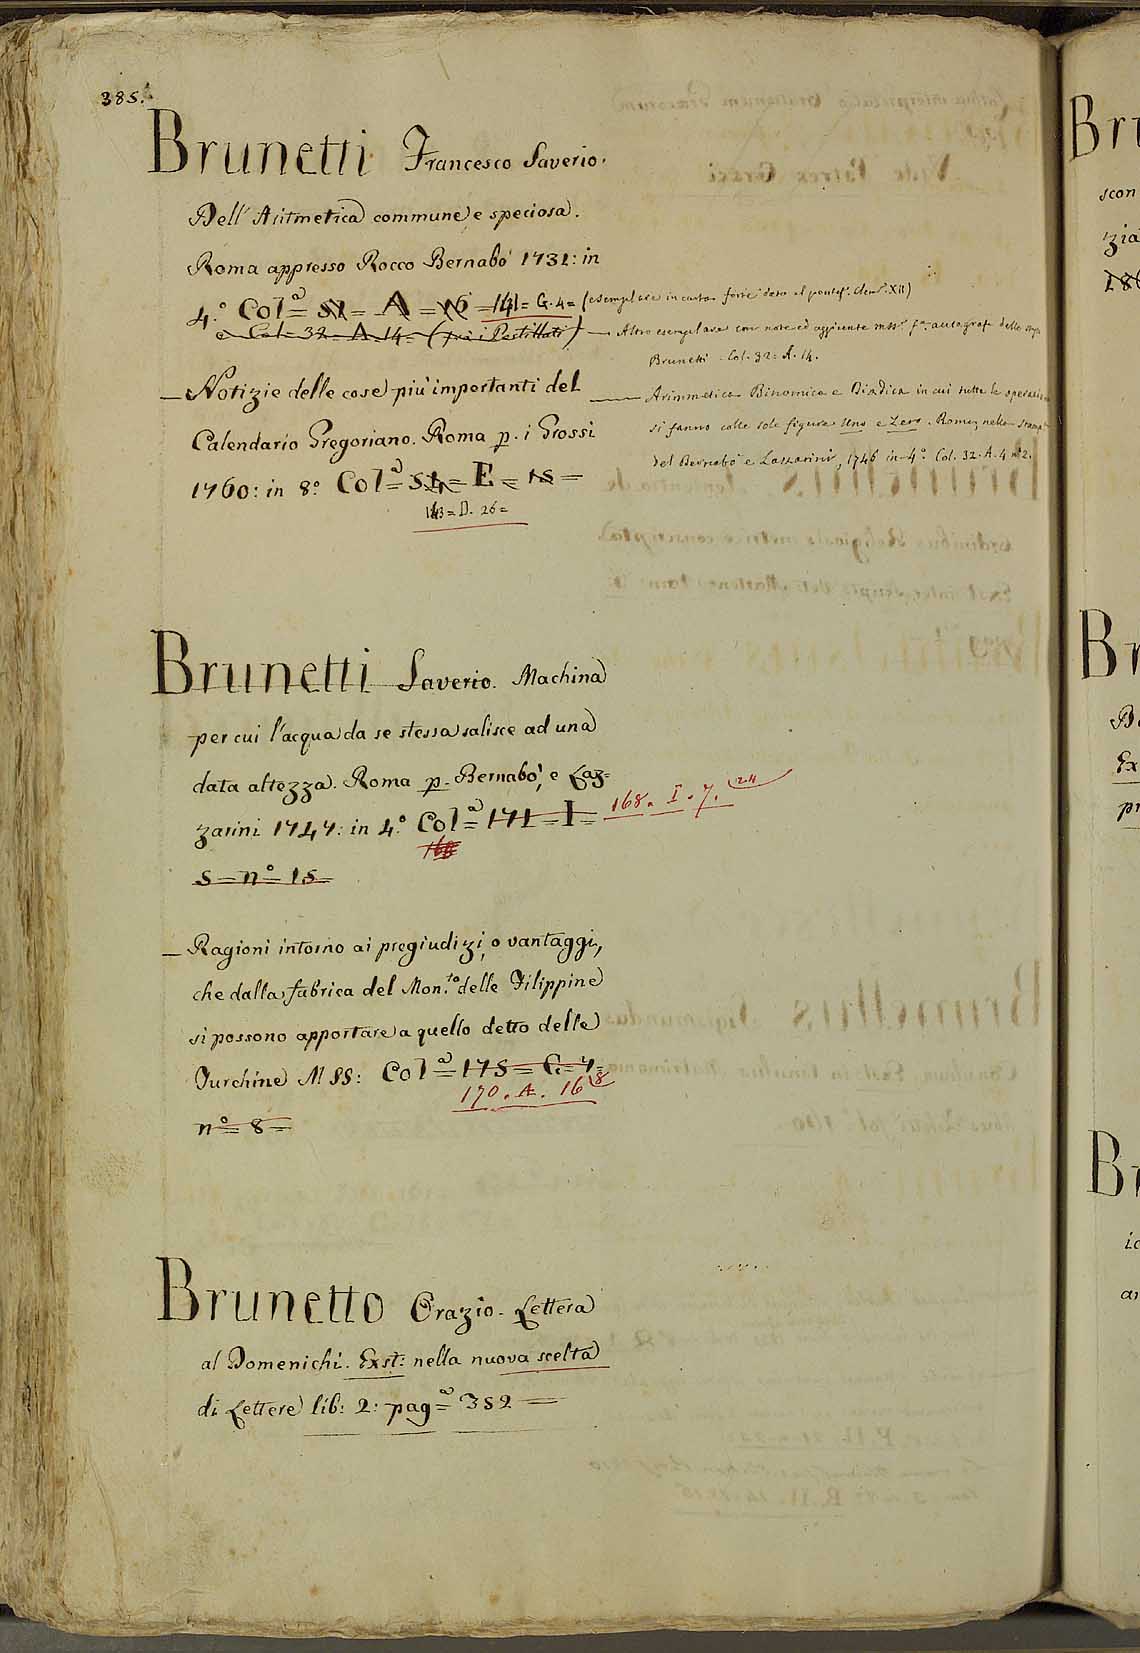 385.
Brunetti Francesco Saverio.
Dell' Aritmetica commune e speciosa.
Roma appresso Rocco Bernabò 1731: in
4.° Col.ª = 51 = A = 16 = 141 = G. 4 = (esemplare in carta forte dato al pontef. Clem. XII)
e Col. 32. A. 14. (fra i Postillati) — Altro esemplare con note ed aggiunte mss. autografe dello stesso
Brunetti Col. 32. A. 14.
— Notizie delle cose più importanti del
Calendario Gregoriano. Roma p. i Grossi
1760: in 8.° Col.ª = 51 = E = 15 =
143 = D. 26 =
— Arimmetica Binomica e Diadica in cui tutte le operazioni
si fanno colle sole figure Uno e Zero. Roma, nella stamp.
del Bernabò e Lazzarini, 1746 in 4.° Col. 32. A. 4 n.° 2.
Brunetti Saverio. Machina
per cui l'acqua da se stessa salisce ad una
data altezza. Roma p. Bernabò, e Laz=
zarini 1747: in 4.° Col.ª = 171 = I = 168. I. 7.
5 = n.° 15
— Ragioni intorno ai pregiudizi, o vantaggi,
che dalla fabrica del Mon.to delle Filippine
si possono apportare a quello detto delle
Turchine MSS: Col.ª = 175 = G = 7 =
170. A. 16 8
n.° = 8 =
Brunetto Orazio. Lettera
al Domenichi. Exst: nella nuova scelta
di Lettere lib: 2: pag.ª = 352 =
Bru
scon
zia
186
Br
Ex
pr
B